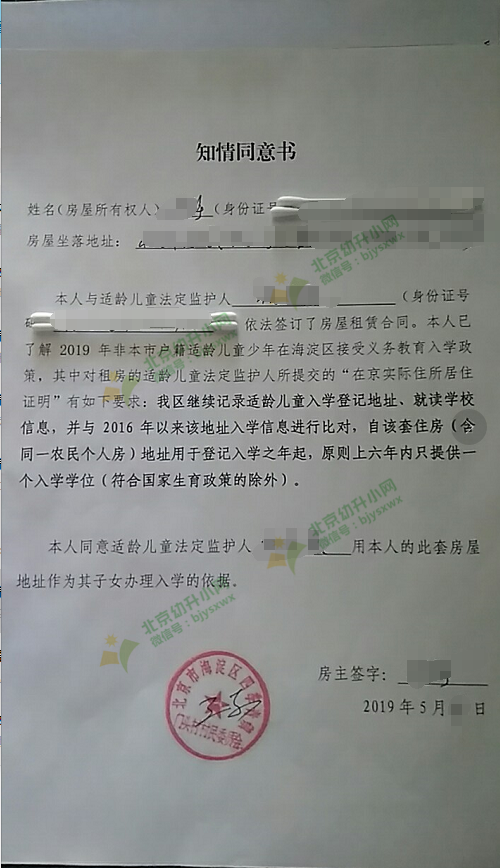 知情同意书
姓名(房屋所有权人)(身份证号
房屋坐落地址:
本人与适龄儿童法定监护人(身份证号
依法签订了房屋租赁合同。本人已
了解 2019 年非本市户籍适龄儿童少年在海淀区接受义务教育入学政
策,其中对租房的适龄儿童法定监护人所提交的“在京实际住所居住
证明”有如下要求:我区继续记录适龄儿童入学登记地址、就读学校
信息,并与 2016 年以来该地址入学信息进行比对,自该套住房(含
同一农民个人房)地址用于登记入学之年起,原则上六年内只提供一
个入学学位(符合国家生育政策的除外)。
本人同意适龄儿童法定监护人用本人的此套房屋
地址作为其子女办理入学的依据。
房主签字:
2019 年 5 月 日
北京市海淀区四季青镇
村民委员会
北京幼升小网
微信号:bjysxwx
北京幼升小网
微信号:bjysxwx
北京幼升小网
微信号:bjysxwx